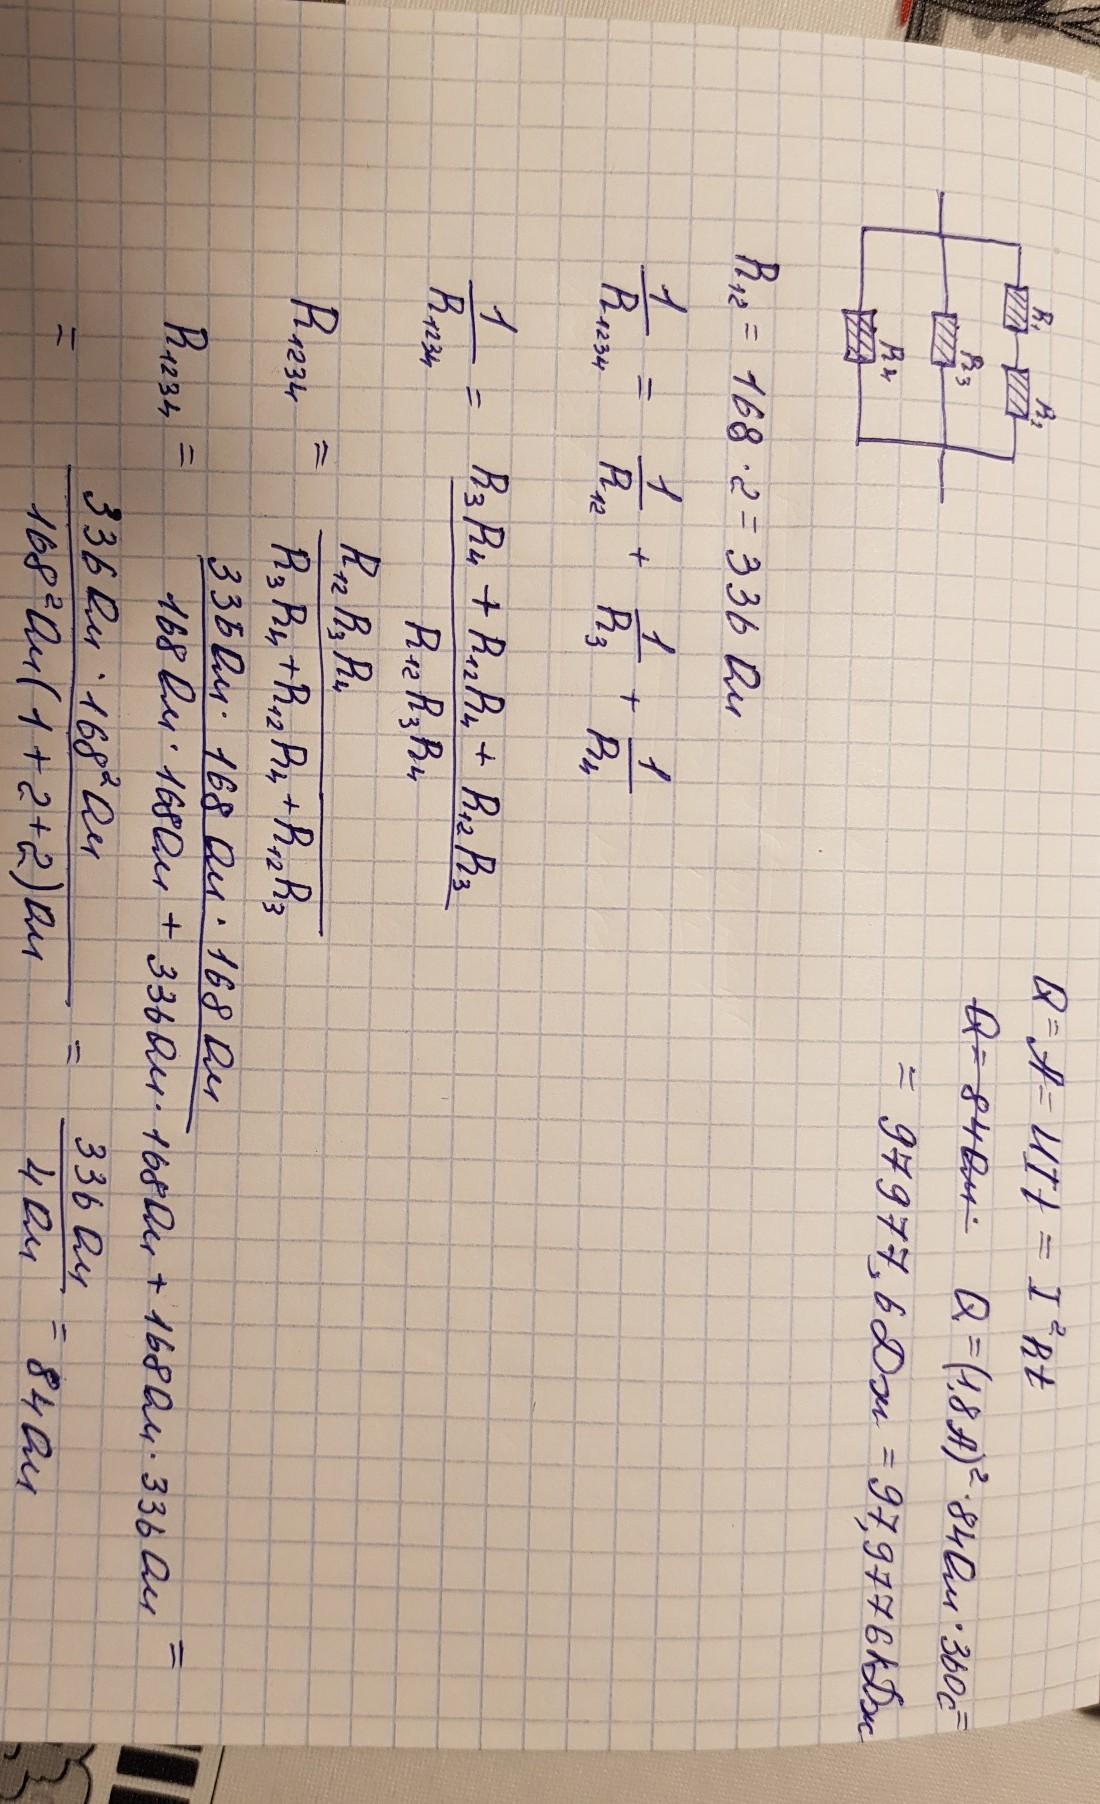 R₁ R₂
R₃
R₄
Q = A = UIt = I²Rt
Q = 84Ом· Q = (1,8А)²·84Ом·360с =
= 97977,6Дж = 97,9776кДж
R₁₂ = 168·2 = 336 Ом
1/R₁₂₃₄ = 1/R₁₂ + 1/R₃ + 1/R₄
1/R₁₂₃₄ = (R₃R₄ + R₁₂R₄ + R₁₂R₃)/(R₁₂R₃R₄)
R₁₂₃₄ = (R₁₂R₃R₄)/(R₃R₄ + R₁₂R₄ + R₁₂R₃)
R₁₂₃₄ = (336Ом·168Ом·168Ом)/(168Ом·168Ом + 336Ом·168Ом + 168Ом·336Ом) =
= (336Ом·168²Ом)/(168²Ом(1+2+2)Ом) = 336Ом/4Ом = 84Ом